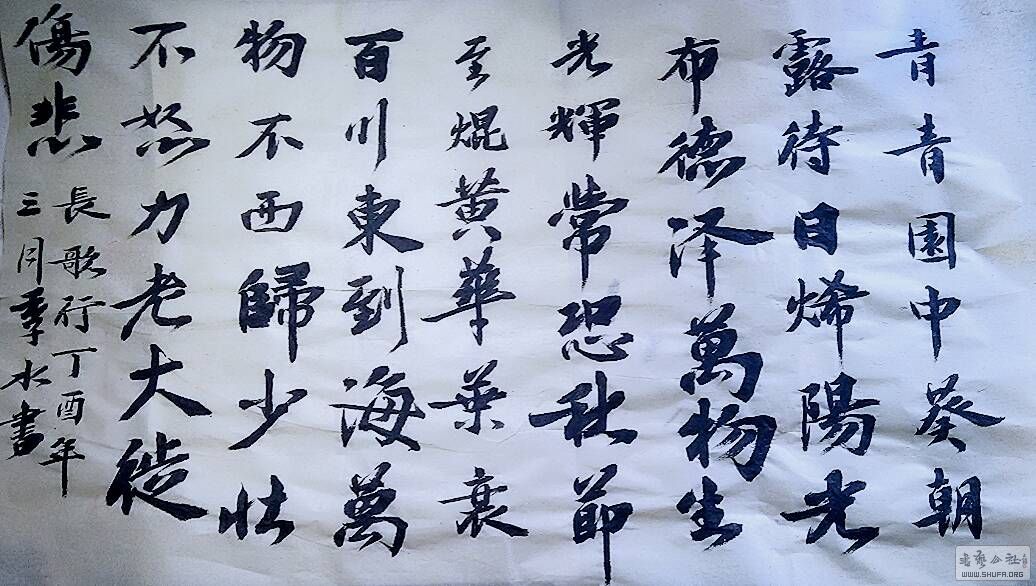 青青園中葵朝
露待日烯陽光
布德泽萬物生
光輝常恐秋節
至焜黄華葉衰
百川東到海萬
物不西歸少壯
不怒力老大徒
傷悲
長歌行丁酉年
三月季水書
WWW.SHUFA.ORG